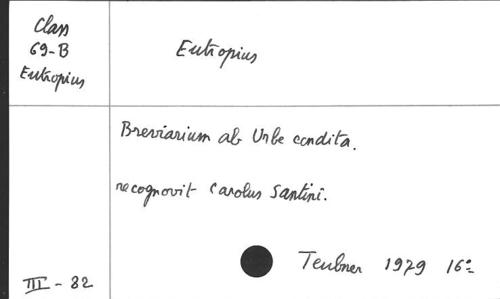 Class
69-B
Eutropius
Eutropius
Breviarium ab Urbe condita.
recognovit Carolus Santini.
Teubner 1979 16°
III - 82